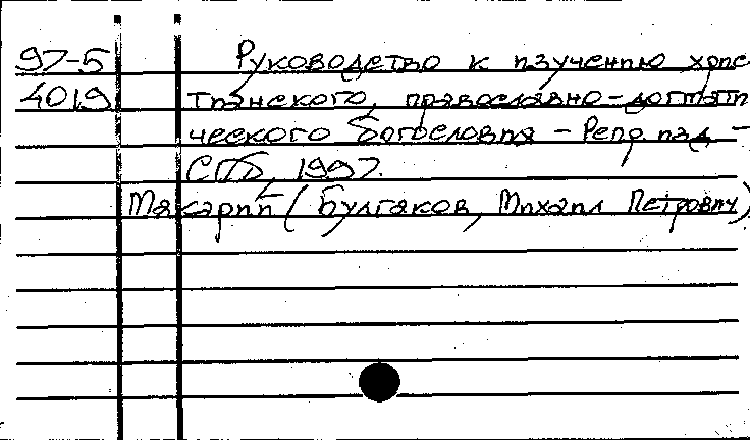 97-5 Руководство к изучению хрис
4019 тианского, православно-догмати
ческого богословия - Репр изд -
СПб, 1997.
Макарий (Булгаков, Михаил Петрович)